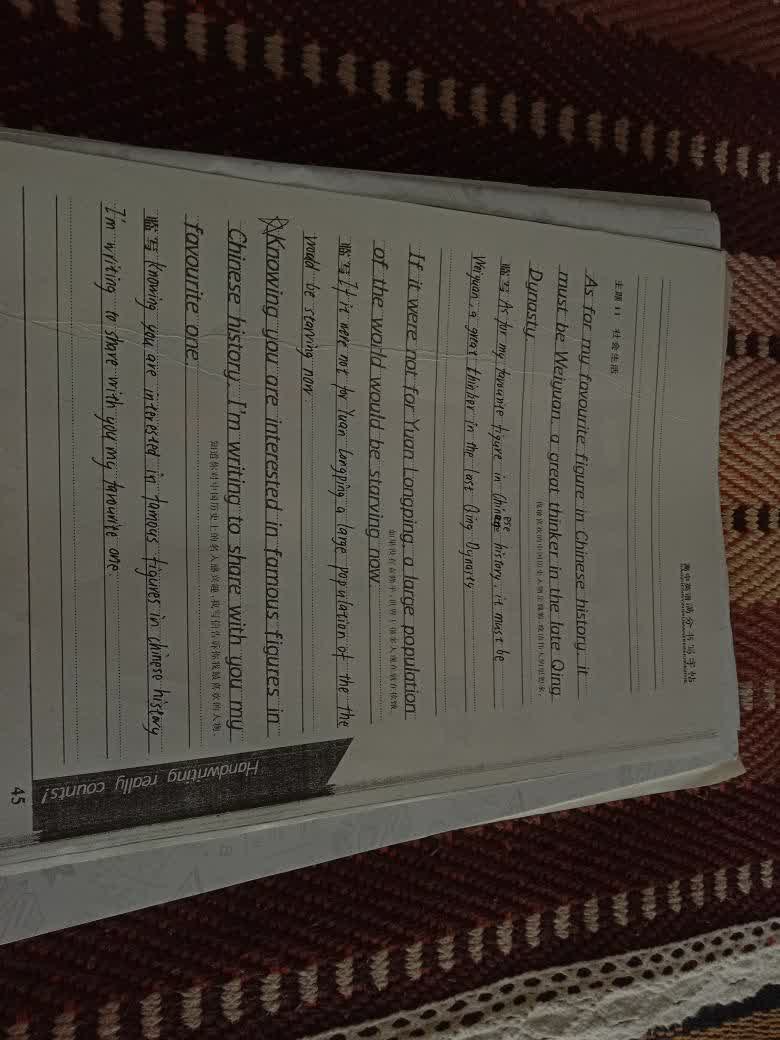 高中英语满分书写字帖
主题 11 社会生活
As for my favourite figure in Chinese history, it
must be Weiyuan, a great thinker in the late Qing
Dynasty.
临写 As for my favourite figure in Chinese history, it must be
Weiyuan, a great thinker in the last Qing Dynasty
If it were not for Yuan Longping, a large population
of the world would be starving now.
临写 If it were not for Yuan Longping a large population of the the
would be starving now
Knowing you are interested in famous figures in
Chinese history, I'm writing to share with you my
知道你对中国历史上的名人感兴趣,我写信告诉你我最喜欢的人物。
favourite one.
临写 knowing you are interested in famous figures in chinese history
I'm writing to share with you my favourite one.
Handwriting really counts!
45